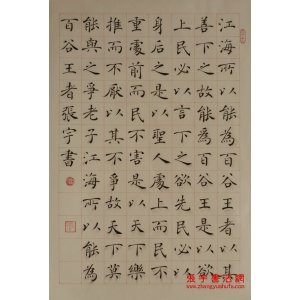 江海所以能為百谷王者以其
善下之故能為百谷王是以欲
上民必以言下之欲先民必以
身后之是以聖人處上而民不
重處前而民不害是以天下樂
推而不厭以其不爭故天下莫
能與之爭老子江海所以能為
百谷王者張宇書
張宇書法網
www.zhangyushufa.com